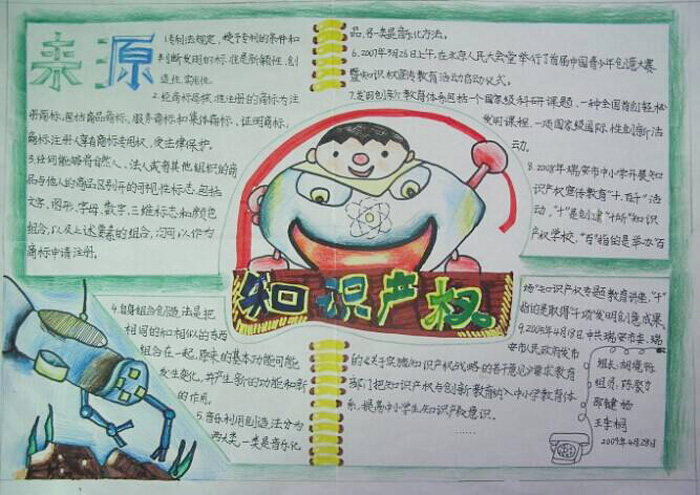 来源
1.专利法规定,授予专利的条件和
判断发明的标准是新颖性,创
造性,实用性.
2.经商标局核准注册的商标为注
册商标,包括商品商标、服务商标和集体商标、证明商标,
商标注册人享有商标专用权,受法律保护。
3.任何能够将自然人、法人或者其他组织的商
品与他人的商品区别开的可视性标志,包括
文字、图形、字母、数字、三维标志和颜色
组合,以及上述要素的组合,均可以作为
商标申请注册。
4.自身组合创造法是把
相同的和相似的东西
组合在一起,原来的基本功能可能
发生变化,并产生新的功能和新
的作用.
5.音乐利用创造法分为
两大类,一类是音乐化
知识产权
品,另一类是音乐化方法。
6.2007年3月26日上午,在北京人民大会堂举行了首届中国青少年创造大赛
暨知识权宣传教育活动启动仪式。
7.发明创新教育体系包括一个国家级科研课题,一种全国首创轻松
发明课程,一项国家级国际性创新活
动。
8.2008年瑞安市中小学开展知
识产权宣传教育"十,百,千"活
动,"十"是创建十所"知识
产权学校,"百"指的是举办百
场"知识产权专题教育讲座,"千"
指的是取得千项发明创造成果。
9.2009年4月18日,中共瑞安市委、瑞
安市人民政府发布
的《关于实施知识产权战略的若干意见》要求教育
部门把知识产权与创新教育纳入中小学教育体
系,提高中小学生知识产权意识。
……
组长:胡
组员:陈
王李桐
2009年4月28日